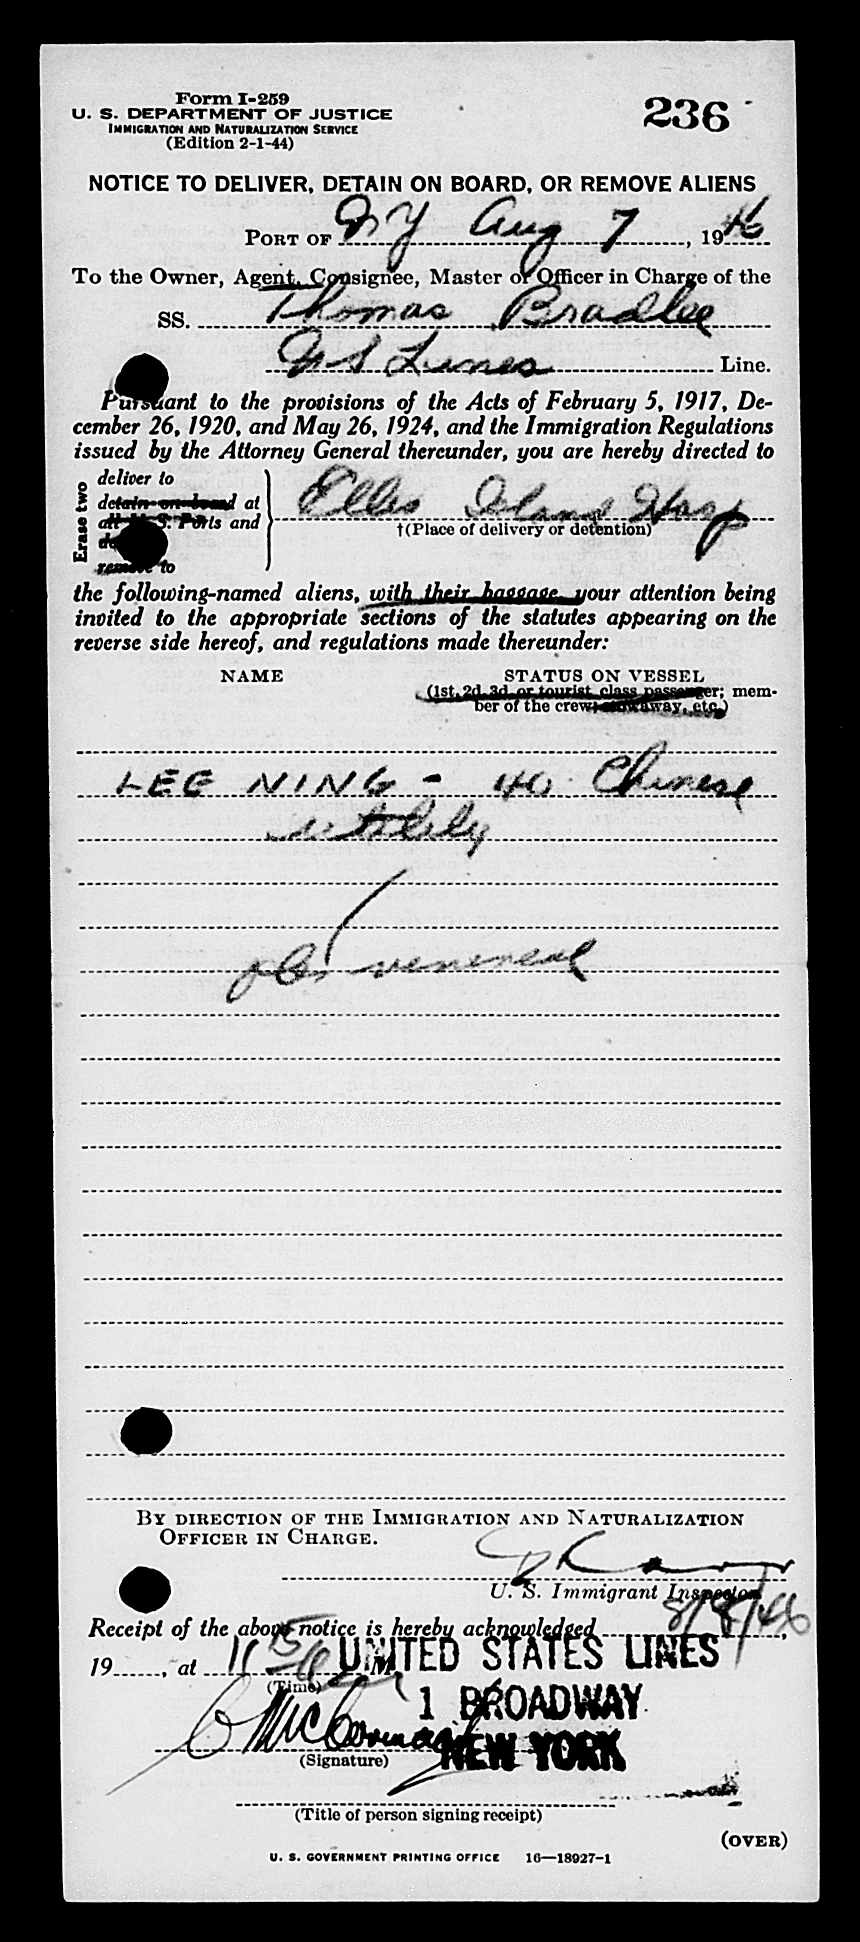 Form I-259
U. S. DEPARTMENT OF JUSTICE
IMMIGRATION AND NATURALIZATION SERVICE
(Edition 2-1-44)
236
NOTICE TO DELIVER, DETAIN ON BOARD, OR REMOVE ALIENS
PORT OF NY Aug 7, 1946
To the Owner, Agent, Consignee, Master or Officer in Charge of the
SS. Thomas Bradlee
US Lines Line.
Pursuant to the provisions of the Acts of February 5, 1917, De-
cember 26, 1920, and May 26, 1924, and the Immigration Regulations
issued by the Attorney General thereunder, you are hereby directed to
Erase two
deliver to
detain on board at
all U. S. Ports and
remove to
Ellis Island Hosp
†(Place of delivery or detention)
the following-named aliens, with their baggage, your attention being
invited to the appropriate sections of the statutes appearing on the
reverse side hereof, and regulations made thereunder:
NAME STATUS ON VESSEL
(1st, 2d, 3d, or tourist class passenger; mem-
ber of the crew; stowaway, etc.)
LEE NING - 40 Chinese
venereal
BY DIRECTION OF THE IMMIGRATION AND NATURALIZATION
OFFICER IN CHARGE.
U. S. Immigrant Inspector.
Receipt of the above notice is hereby acknowledged 8/8/46,
19, at 11 15 M.
(Time)
UNITED STATES LINES
1 BROADWAY
NEW YORK
(Signature)
(Title of person signing receipt)
(OVER)
U. S. GOVERNMENT PRINTING OFFICE 16—18927-1